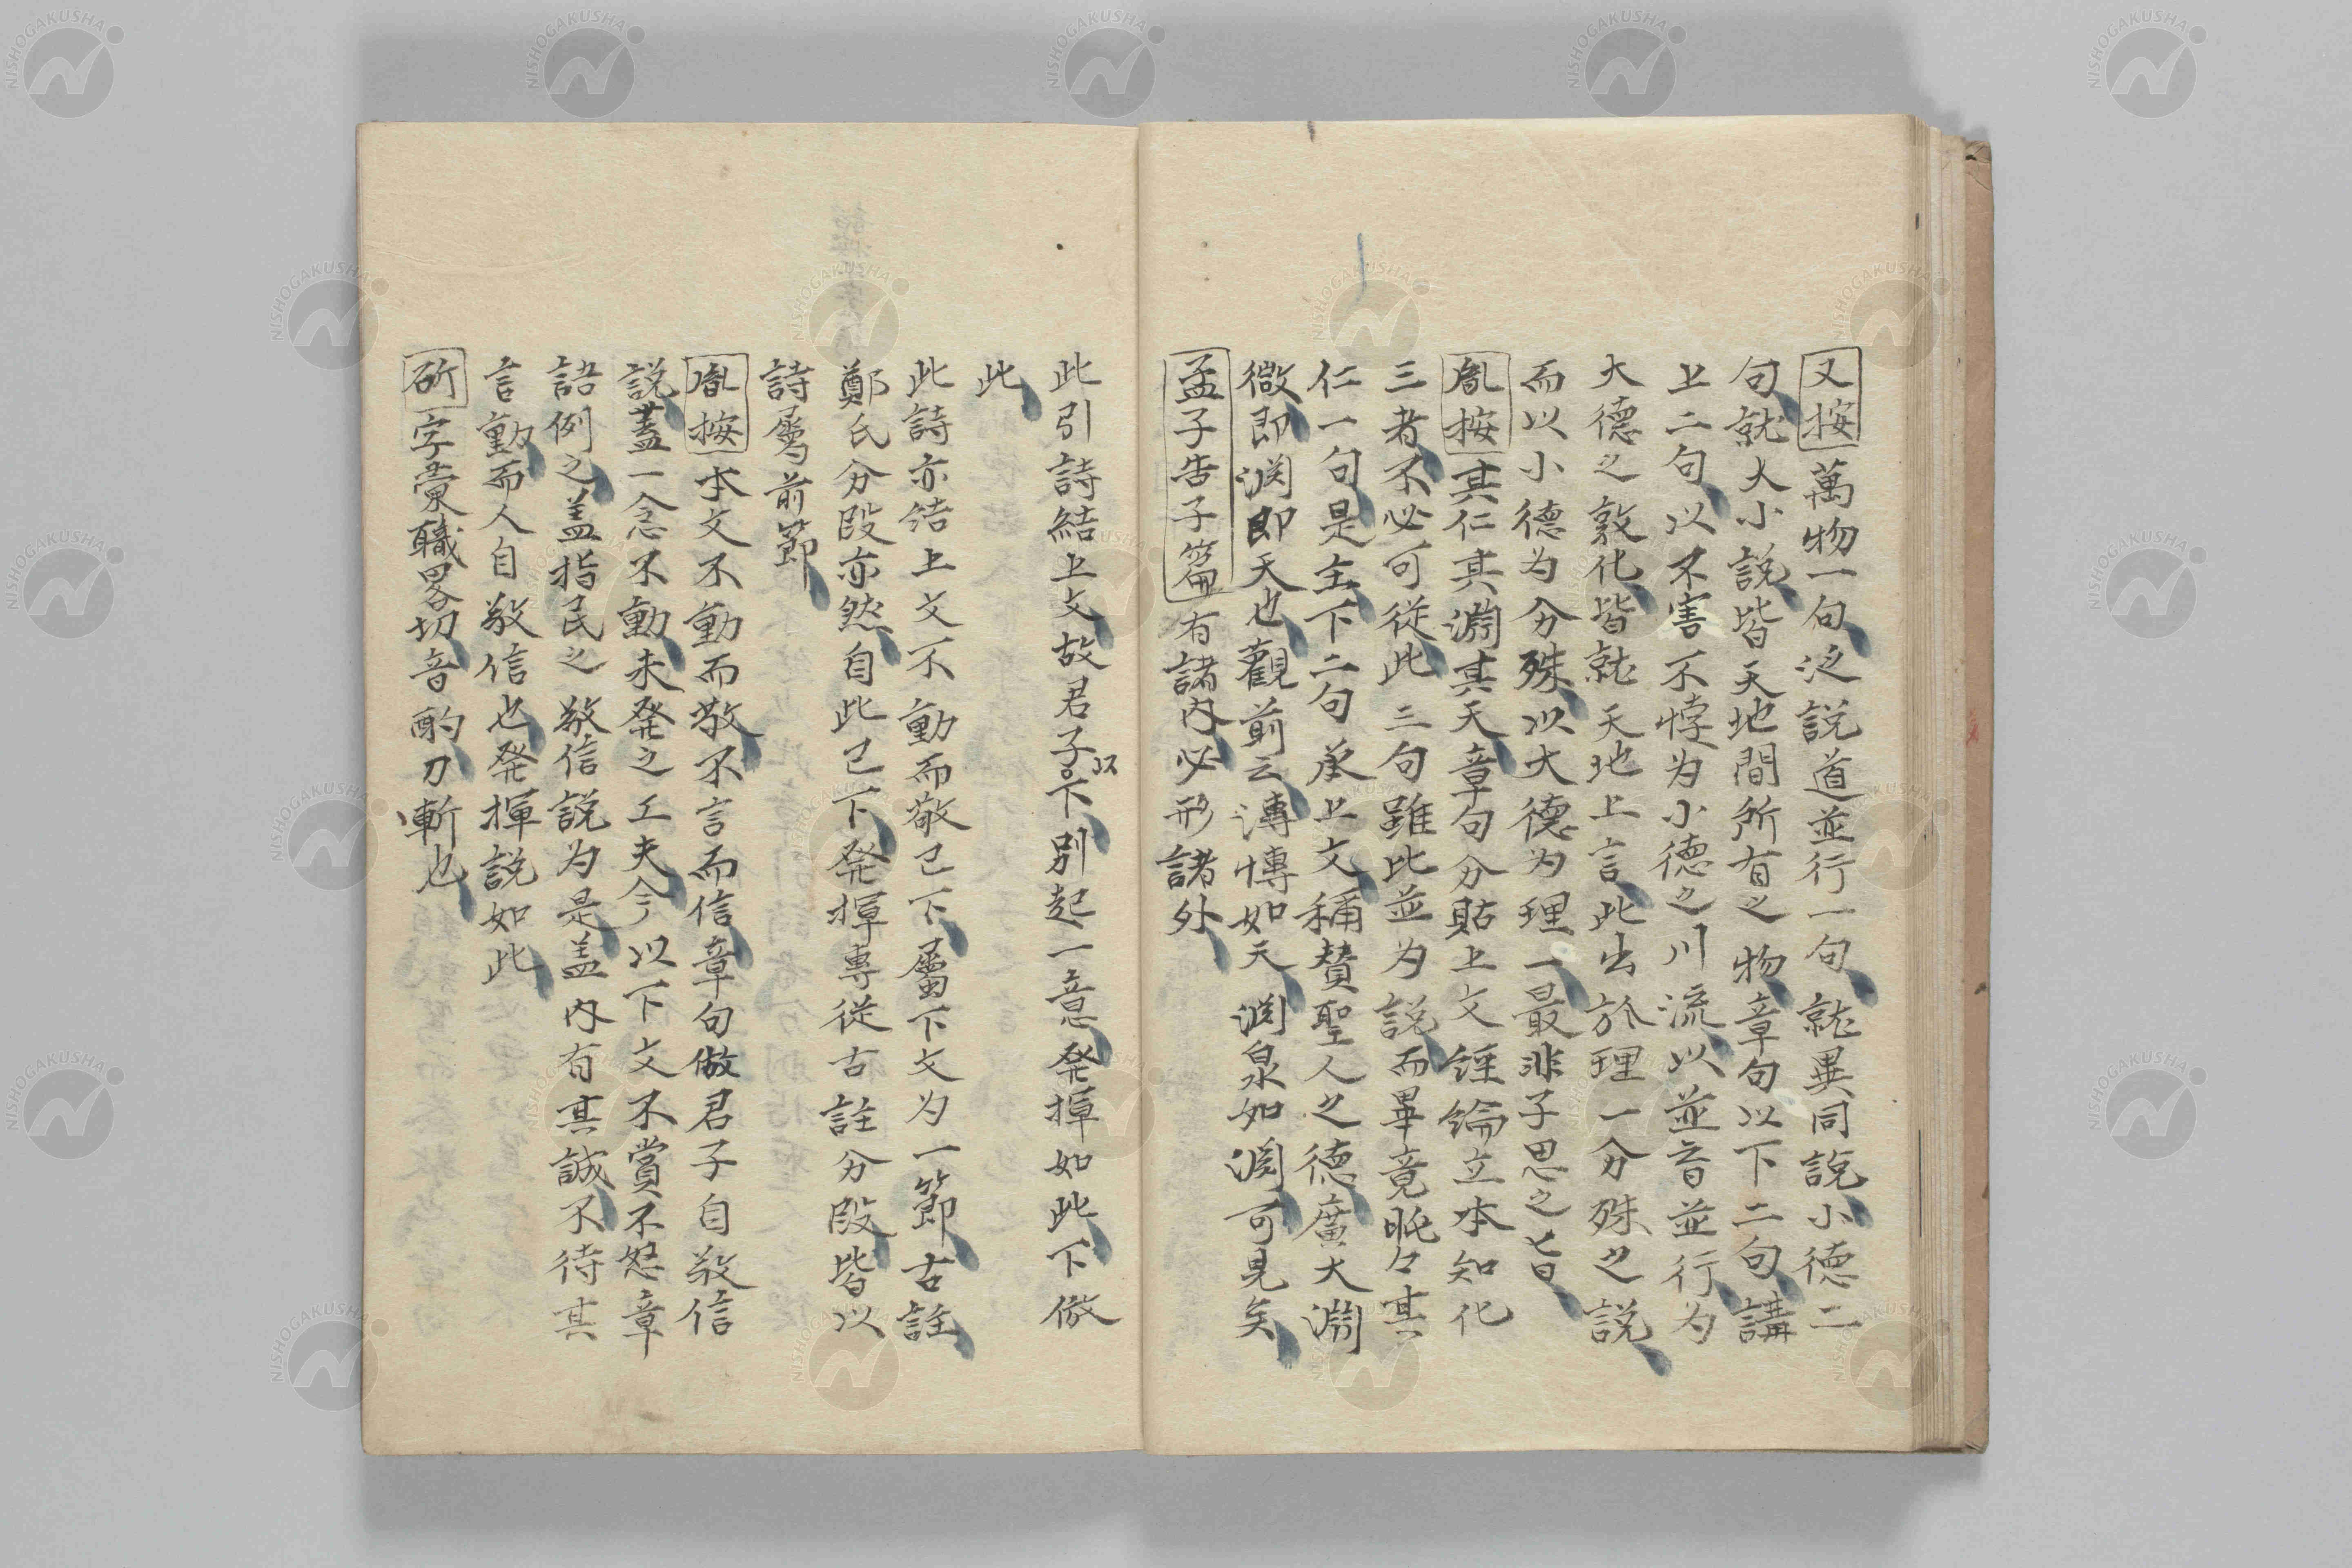 又按萬物一句泛説道並行一句就異同説小德二
句就大小説皆天地間所有之物章句以下二句講
上二句以不害不悖为小德之川流以並育並行为
大德之敦化皆就天地上言此出於理一分殊之説
而以小德为分殊以大德为理一最非子思之旨
胤按其仁其淵其天章句分貼上文經綸立本知化
三者不必可從此三句雖比並为説而畢竟肫々其
仁一句是主下二句承上文稱賛聖人之德廣大淵
微即渕即天也觀前云溥博如天渕泉如渕可見矣
孟子告子篇有諸内必形諸外
此引詩結上文故君子以下別起一意発揮如此下倣
此
此詩亦结上文不動而敬已下屬下文为一節古註
鄭氏分段亦然自此已下発揮專從古註分段皆以
詩属前節
胤按本文不動而敬不言而信章句做君子自敬信
説蓋一念不動未発之工夫今以下文不賞不怒章
語例之盖指民之敬信説为是盖内有其誠不待其
言動而人自敬信也発揮説如此
斫字彙職畧切音酌刀斬也
NISHOGAKUSHA